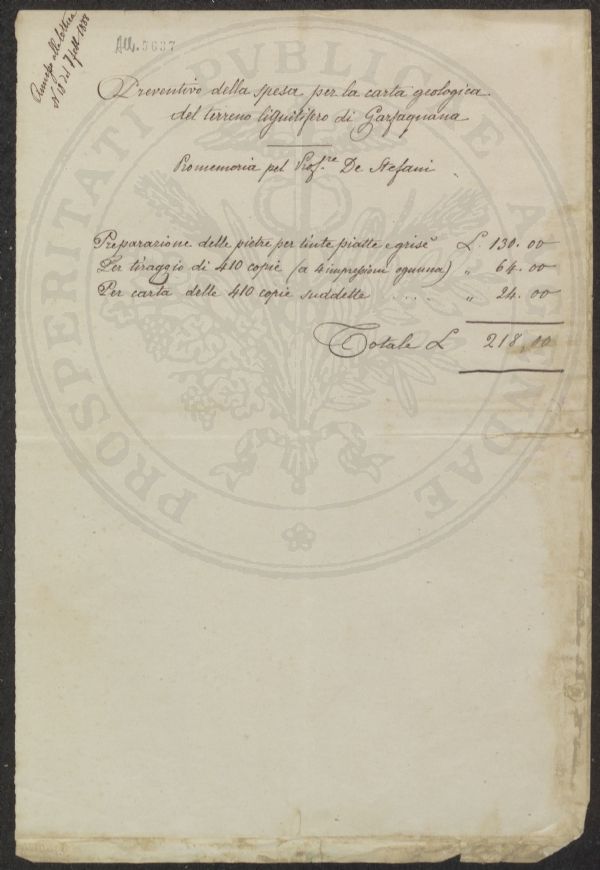 Annesso alla lettera
N. 10 del 7 sett. 1888
All. 5637
Preventivo della spesa per la carta geologica
del terreno lignitifero di Garfagnana
Promemoria pel Prof.re De Stefani
Preparazione delle pietre per tinte piatte e grisé L. 130.00
Per tiraggio di 410 copie (a 4 impressioni ognuna) " 64.00
Per carta delle 410 copie suddette .... " 24.00
Totale L 218,00
PROSPERITATI PUBLICAE AUGENDAE